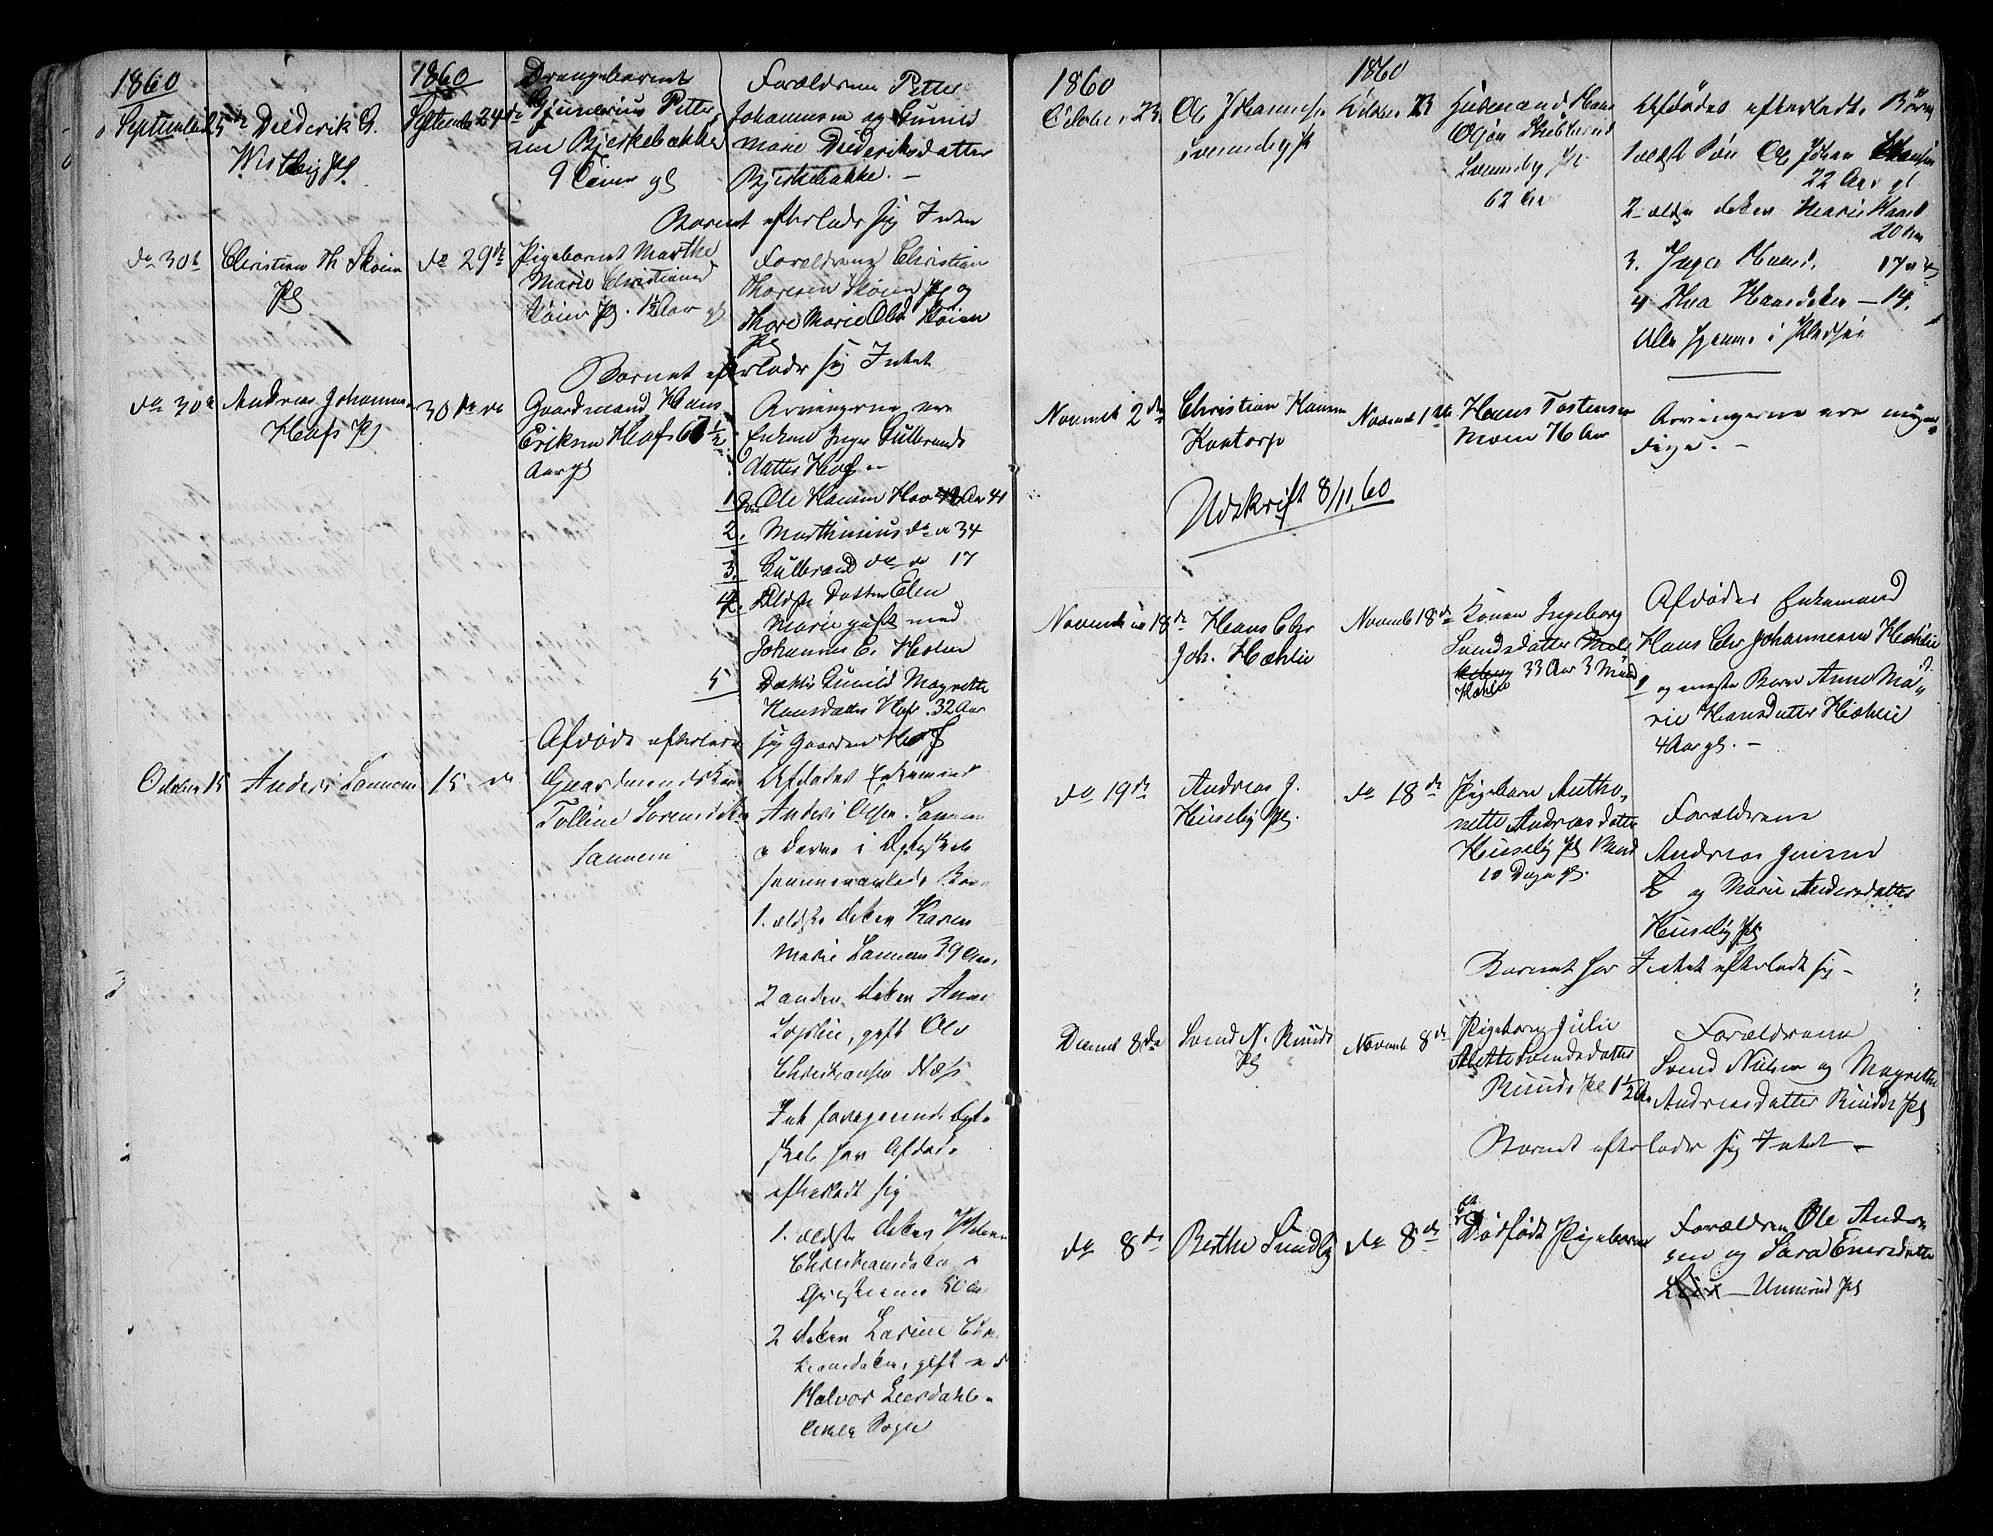 1860
Septembr 25de Diederik C.
Wistby Pl
1860
Septembr 24de
Drengebarnet
Gunerius Petter-
sen Bjerkebakke
9 Timer gl
Forældrene Petter
Johannesen og Gunild
Marie Diederiksdatter
Bjerkebakke. –
Barnet efterlader sig Intet
do 30te
Christian Th Skøien
Pl
do 29de
Pigebarnet Marthe
Marie Christiansd
Skøien Pl. 1½ Aar gl
Forældrene Christian
Thoresen Skøien Pl og
Thore Marie Olsd Skøien
Pl
Barnet efterlader sig Intet
do 30te
Andreas Johannes
Hafs Pl
30de do
Gaardmand Hans
Eriksen Hof 67½
Aar gl
Arvingerne ere
Enken Inger Gulbrands
datter Hof –
1. Ole Hansen Hov Aar 41
2. Marthinius do do 34
3. Gulbrand do do 17
4. Ældste Datter Elen
Marie gift med
Johannes E. Holen
5 Datter Gunild Magrethe
Hansdatter Hof. 32 Aar
Afdøde efterlader sig Gaarden Hof
October 15
Anders Sannem
15 do
Gaardmandskone
Tolline Sorensdatter
Sannem
Afdødes Enkemand
Anders Olsen Sannem
og deres i Ægteskab
sammenavlede Børn
1. ældste datter Karen
Marie Sannem 39 Aar
2 anden datter Anne
Sophie, gift Ole
Christiansen Næss
I et foregaaende Ægte
skab har Afdøde
efterladt sig
1. ældste datter Helene
Christiansdatter
2 datter Larine Chri
stiansdatter, gift med
Halvor Leerdahl
Sogn
1860
October 23
Ole Johannesen
Svenneby Pl
1860
October 23
Huusmand Hans
Svenneby Pl
62 Aar
Afdødes efterladte Børn
1. ældst Søn Ole Johan Hansen
22 Aar gl
2 – ældste datter Marie Hansd
20 Aar
3. Inger Hansd. 17
4 Thea Hansdatter – 14.
Alle hjemme i Pladsen
Novemb 2den
Christian Hansen
Kontorp
Novemb 1ste
Hans Tostensen
Moen
Arvingerne ere myn
dige. –
Udskrift 8/11.60
Novembr 18de
Hans Chr
Joh. Hæhlie
Novemb 18de
Konen Ingeborg
Svendsdatter
Hæhlie 33 Aar 3 Mdr
Afdødes Enkemand
Hans Chr Johannesen Hæhlie
og eneste Barn Anne Ma-
rie Hansdatter Hæhlie
4 Aar gl. –
do 19de
Andreas J.
Huseby Pl.
do 18de
Pigebarn Antho-
nette Andreasdatter
Huseby Pl 1 Mnd
10 Dage gl.
Forældrene
Andreas Jensen
og Marie Andersdatter
Huseby Pl
Barnet har Intet efterladt sig –
Decemb 8de
Svend N. Ruuds
Pl
Novemb 8de
Pigebarn Julie
Mette Svendsdatter
Ruuds Pl 1½ Aar
Forældrene
Svend Nielsen og Magrethe
Andreasdatter Ruuds Pl
Barnet efterlader sig Intet –
do 8de
Berthe Sundby
do 8de
Et
Dødfødt Pigebarn
Forældrene Ole Andre
sen og Sara Enersdatter
Unnerud Pl